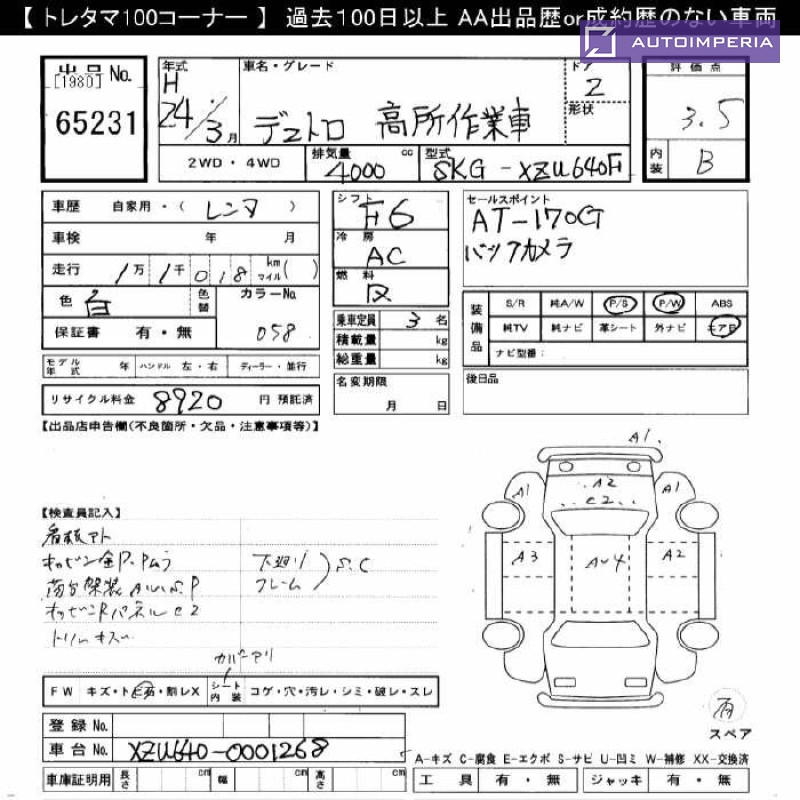 【 トレタマ100コーナー 】 過去100日以上 AA出品歴or成約歴のない車両
AUTOIMPERIA
出品 No.
[1980]
65231
年式
H
24/3月
車名・グレード
デュトロ 高所作業車
ドア
2
形状
評価点
3.5
内装
B
2WD・4WD
排気量
4000 cc
型式
SKG-XZU640F
車歴 自家用・( レンタ )
車検 年 月
走行 1万1千018 km マイル( )
色 白 色替
カラーNo.
058
保証書 有・無
モデル年式 年 ハンドル 左・右 ディーラー・並行
リサイクル料金 8920 円 預託済
シフト
F6
冷房
AC
燃料
乗車定員 3 名
積載量 kg
総重量 kg
名変期限
月 日
セールスポイント
AT-170G
バックカメラ
装備品
S/R 純A/W P/S P/W ABS
純TV 純ナビ 革シート 外ナビ エアB
ナビ型番:
後日品
【出品店申告欄(不良箇所・欠品・注意事項等)】
【検査員記入】
看板アト
下廻り
フレーム
S.C
トリムキズ
カバーアリ
FW キズ・ト石・割レX
シート内装 コゲ・穴・汚レ・シミ・破レ・スレ
登録 No.
車台 No. XZU640-0001268
車庫証明用 長さ cm 幅 cm 高さ cm
A1.
A1
A2
C2
A1
A3
AU4
A2
スペア
A-キズ C-腐食 E-エクボ S-サビ U-凹ミ W-補修 XX-交換済
工具 有・無 ジャッキ 有・無